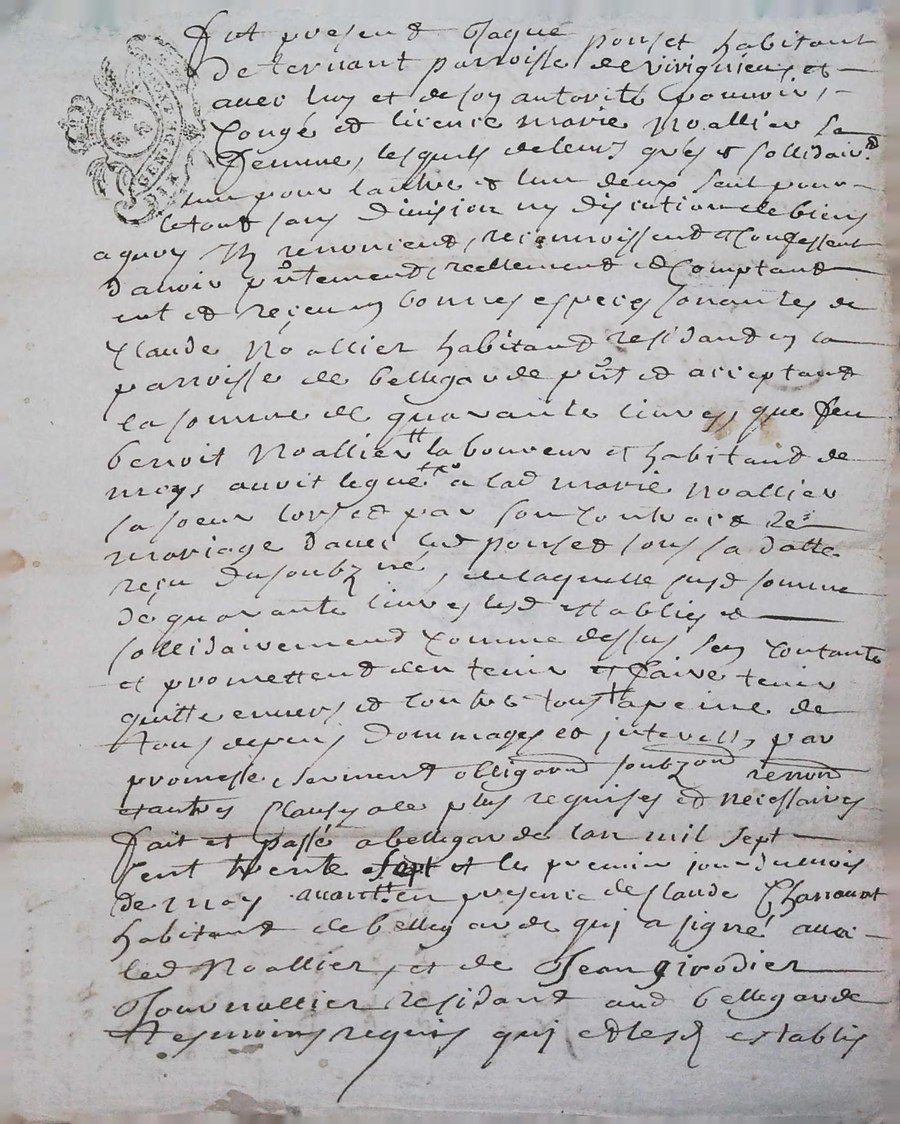 fut present Jaque ponset habitant
de ternant parroisse de virignieux et
avec luy et de son autorité pouvoir,
Congé et licence marie Noallier sa
femme, lesquels de leurs grés et sollidair.t
l'un pour lautre et lun deux seul pour
le tout sans division ny discution de biens
a quoy ils renoncent, reconnoissent et Confessent
d'avoir pntement, reellement et Comptant
eut et reçeu en bonnes especes sonantes de
Claude Noallier habitant residant en la
parroisse de bellegarde pnt et acceptant
la somme de quarante livres, que feu
benoit Noallier laboureur et habitant de
meys auroit legué a lad marie Noallier
sa soeur lors et par son Contract de
mariage d'avec led ponset sous sa datte
reçu du soubz.né, de laquelle susd somme
de quarante livres lesd establies et
sollidairement Comme dessus sen Contante
et promettent d'en tenir et faire tenir
quitte envers et contre tous a peine de
tous depens dommages et interests, par
promesse serment obligaon soubzon renon
et autres Clauses a ce plus requises et necessaires
fait et passé a bellegarde lan mil sept
Cent trente sept et le premier jour du mois
de may avant.. en presence de Claude
habitant de bellegarde qui a signé avec
led Noallier, et de Jean girodier
Journallier residant aud bellegarde
tesmoins requis qui et lesd establis